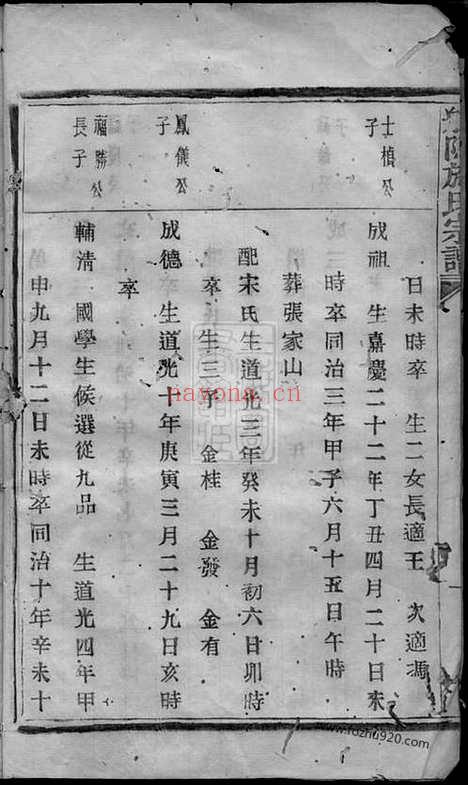 陽施氏宗譜
日未時卒　生二女長適王　次適馮
士楨公
子
成祖　生嘉慶二十二年丁丑四月二十日未
時卒同治三年甲子六月十五日午時
葬張家山
配宋氏生道光三年癸未十月初六日卯時
卒　生三子　金桂　金發　金有
鳳儀公
子
成德　生道光十年庚寅三月二十九日亥時
卒
福勝公
長子
輔清　國學生候選從九品　生道光四年甲
申九月十二日未時卒同治十年辛未十
nayona.cn
www.fozhu920.com